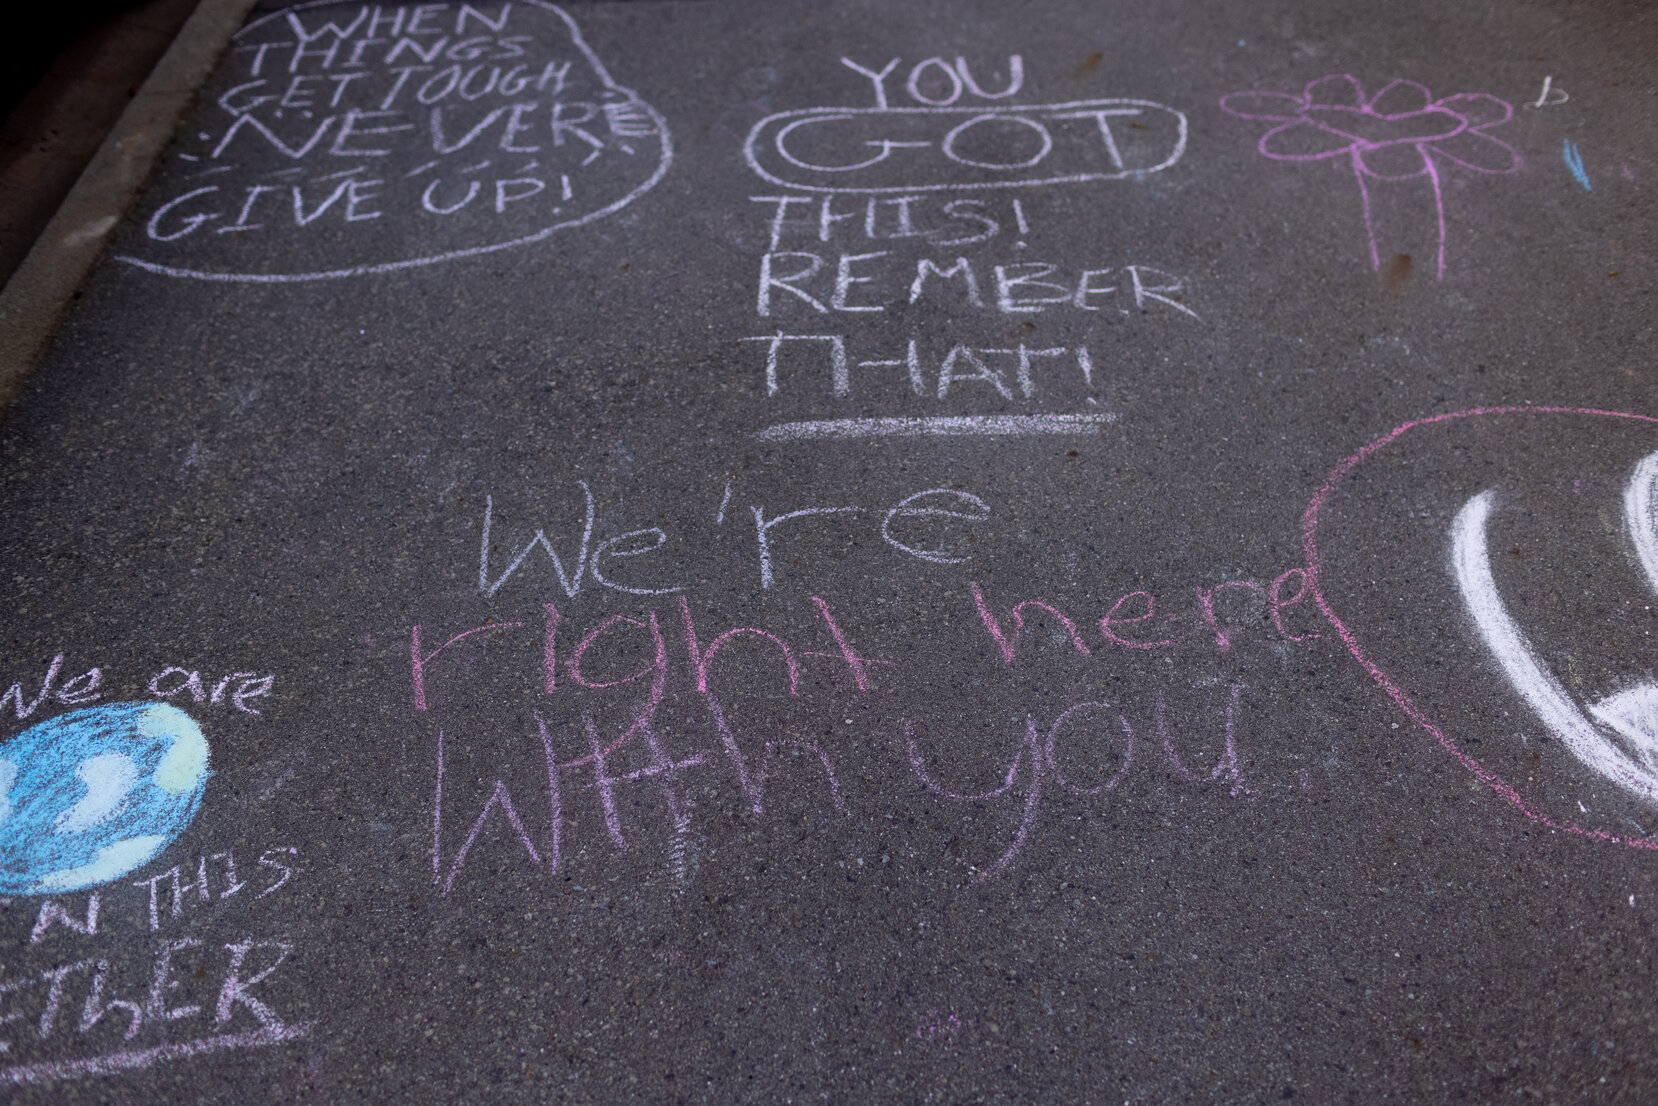 WHEN
THINGS
GET TOUGH
NEVER
GIVE UP!
YOU
GOT
THIS!
REMBER
THAT!
We're
right here
with you.
We are
N THIS
ETHER